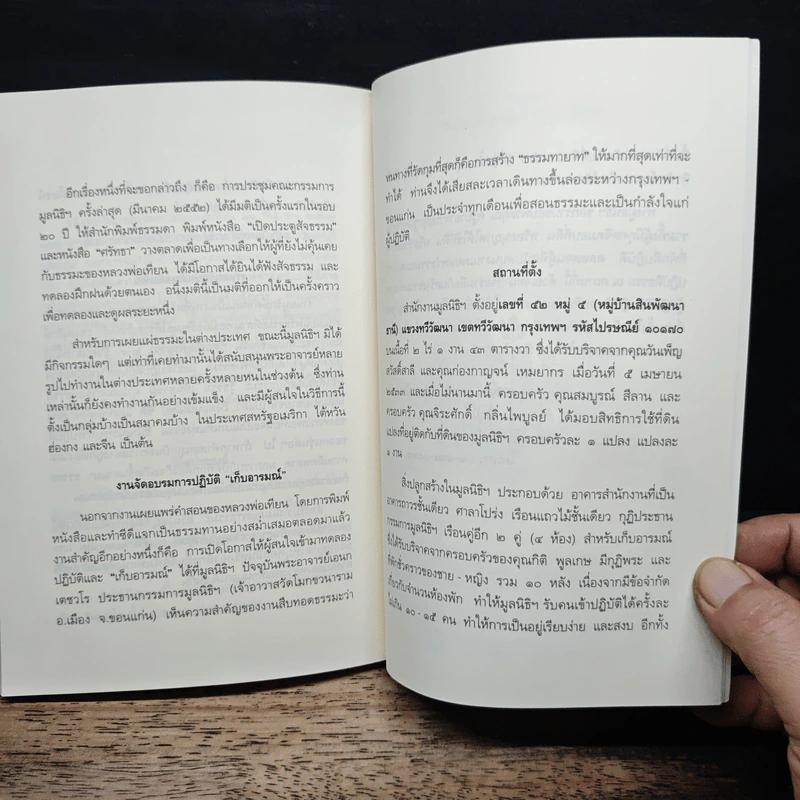 อีกเรื่องหนึ่งที่จะขอกล่าวถึง ก็คือ การประชุมคณะกรรมการ
มูลนิธิฯ ครั้งล่าสุด (มีนาคม ๒๕๕๒) ได้มีมติเป็นครั้งแรกในรอบ
๒๐ ปี ให้สำนักพิมพ์ธรรมดา พิมพ์หนังสือ “เปิดประตูสัจธรรม”
และหนังสือ “ศรัทธา” วางตลาดเพื่อเป็นทางเลือกให้ผู้ที่ยังไม่คุ้นเคย
กับธรรมะของหลวงพ่อเทียน ได้มีโอกาสได้ยินได้ฟังสัจธรรม และ
ทดลองฝึกฝนด้วยตนเอง อนึ่งมตินี้เป็นมติที่ออกให้เป็นครั้งคราว
เพื่อทดลองและดูผลระยะหนึ่ง
สำหรับการเผยแผ่ธรรมะในต่างประเทศ ขณะนี้มูลนิธิฯ มิได้
มีกิจกรรมใดๆ แต่เท่าที่เคยทำมานั้นได้สนับสนุนพระอาจารย์หลาย
รูปไปทำงานในต่างประเทศหลายครั้งหลายหนในช่วงต้น ซึ่งท่าน
เหล่านั้นก็ยังคงทำงานกันอย่างเข้มแข็ง และมีผู้สนใจในวิธีการนี้
ตั้งเป็นกลุ่มบ้างเป็นสมาคมบ้าง ในประเทศสหรัฐอเมริกา ไต้หวัน
ฮ่องกง และจีน เป็นต้น
งานจัดอบรมการปฏิบัติ “เก็บอารมณ์”
นอกจากงานเผยแพร่คำสอนของหลวงพ่อเทียน โดยการพิมพ์
หนังสือและทำซีดีแจกเป็นธรรมทานอย่างสม่ำเสมอตลอดมาแล้ว
งานสำคัญอีกอย่างหนึ่งก็คือ การเปิดโอกาสให้ผู้สนใจเข้ามาทดลอง
ปฏิบัติและ “เก็บอารมณ์” ได้ที่มูลนิธิฯ ปัจจุบันพระอาจารย์เอนก
เตชวโร ประธานกรรมการมูลนิธิฯ (เจ้าอาวาสวัดโมกขวนาราม
อ.เมือง จ.ขอนแก่น) เห็นความสำคัญของงานสืบทอดธรรมะว่า
หนทางที่รัดกุมที่สุดก็คือการสร้าง “ธรรมทายาท” ให้มากที่สุดเท่าที่จะ
ทำได้ ท่านจึงได้เสียสละเวลาเดินทางขึ้นล่องระหว่างกรุงเทพฯ -
ขอนแก่น เป็นประจำทุกเดือนเพื่อสอนธรรมะและเป็นกำลังใจแก่
ผู้ปฏิบัติ
สถานที่ตั้ง
สำนักงานมูลนิธิฯ ตั้งอยู่เลขที่ ๕๒ หมู่ ๕ (หมู่บ้านสินพัฒนา
ธานี) แขวงทวีวัฒนา เขตทวีวัฒนา กรุงเทพฯ รหัสไปรษณีย์ ๑๐๑๗๐
บนเนื้อที่ ๒ ไร่ ๑ งาน ๔๓ ตารางวา ซึ่งได้รับบริจาคจากคุณวันเพ็ญ
สวัสดิ์สาลี และคุณก่องกาญจน์ เหมยากร เมื่อวันที่ ๕ เมษายน
๒๕๓๓ และเมื่อไม่นานมานี้ ครอบครัว คุณสมบูรณ์ สีลาน และ
ครอบครัว คุณจิระศักดิ์ กลิ่นไพบูลย์ ได้มอบสิทธิการใช้ที่ดิน
แปลงที่อยู่ติดกับที่ดินของมูลนิธิฯ ครอบครัวละ ๑ แปลง แปลงละ
๑ งาน
สิ่งปลูกสร้างในมูลนิธิฯ ประกอบด้วย อาคารสำนักงานที่เป็น
อาคารถาวรชั้นเดียว ศาลาโปร่ง เรือนแถวไม้ชั้นเดียว กุฏิประธาน
กรรมการมูลนิธิฯ เรือนคู่อีก ๒ คู่ (๔ ห้อง) สำหรับเก็บอารมณ์
ซึ่งได้รับบริจาคจากครอบครัวของคุณกิติ พูลเกษ มีกุฏิพระ และ
ที่พักชั่วคราวของชาย - หญิง รวม ๑๐ หลัง เนื่องจากมีข้อจำกัด
เกี่ยวกับจำนวนห้องพัก ทำให้มูลนิธิฯ รับคนเข้าปฏิบัติได้ครั้งละ
ไม่เกิน ๑๐ - ๑๕ คน ทำให้การเป็นอยู่เรียบง่าย และสงบ อีกทั้ง